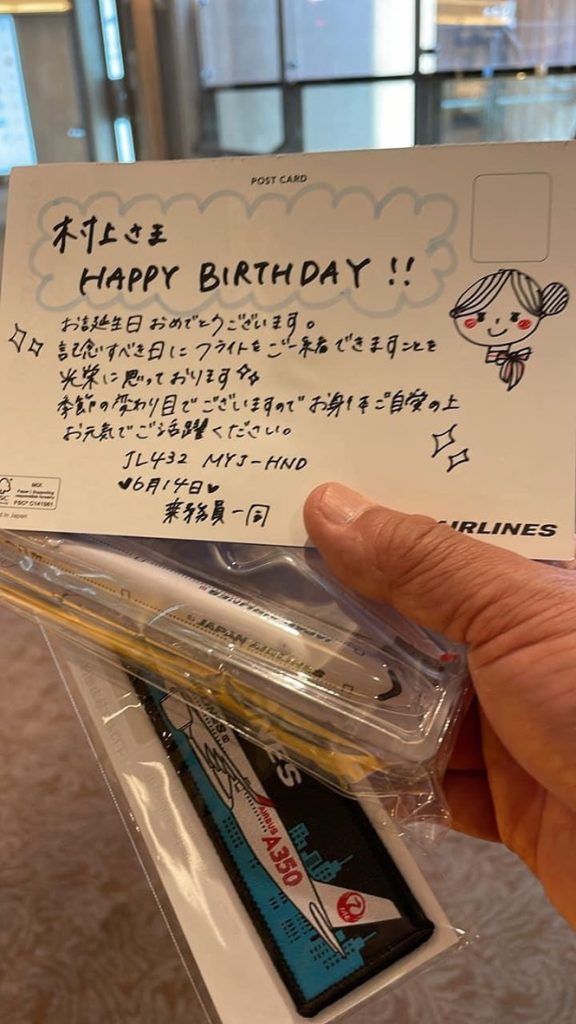 POST CARD
村上さま
HAPPY BIRTHDAY !!
お誕生日おめでとうございます。
記念すべき日にフライトをご一緒できますことを
光栄に思っております
季節の変わり目でございますのでお身体ご自愛の上
お元気でご活躍ください。
JL432 MYJ-HND
♥6月14日♥
乗務員一同
MIX
FSC® C141561
in Japan
AIRLINES
JAPAN AIRLINES
AIRBUS
A350
JAL